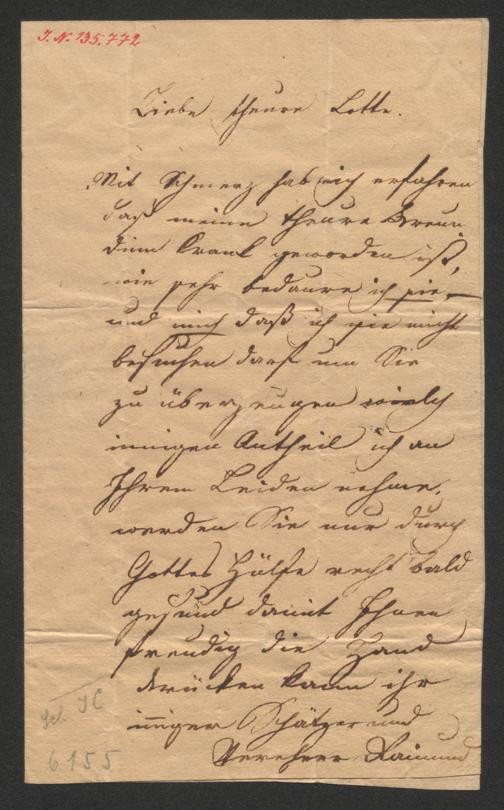 I. N. 135.772
Liebe theure Lotte.
Mit Schmerz hab ich erfahren
daß meine theure Freun
dinn krank geworden ist,
wie sehr bedaure ich sie
und mich daß ich sie nicht
besuchen darf um Sie
zu überzeugen welch
innigen Antheil ich an
Ihrem Leiden nehme.
werden Sie nur durch
Gottes Hülfe recht bald
gesund damit Ihnen
freudig die Hand
drücken kann ihr
inniger Schätzer und
Verehrer Raimund
6155